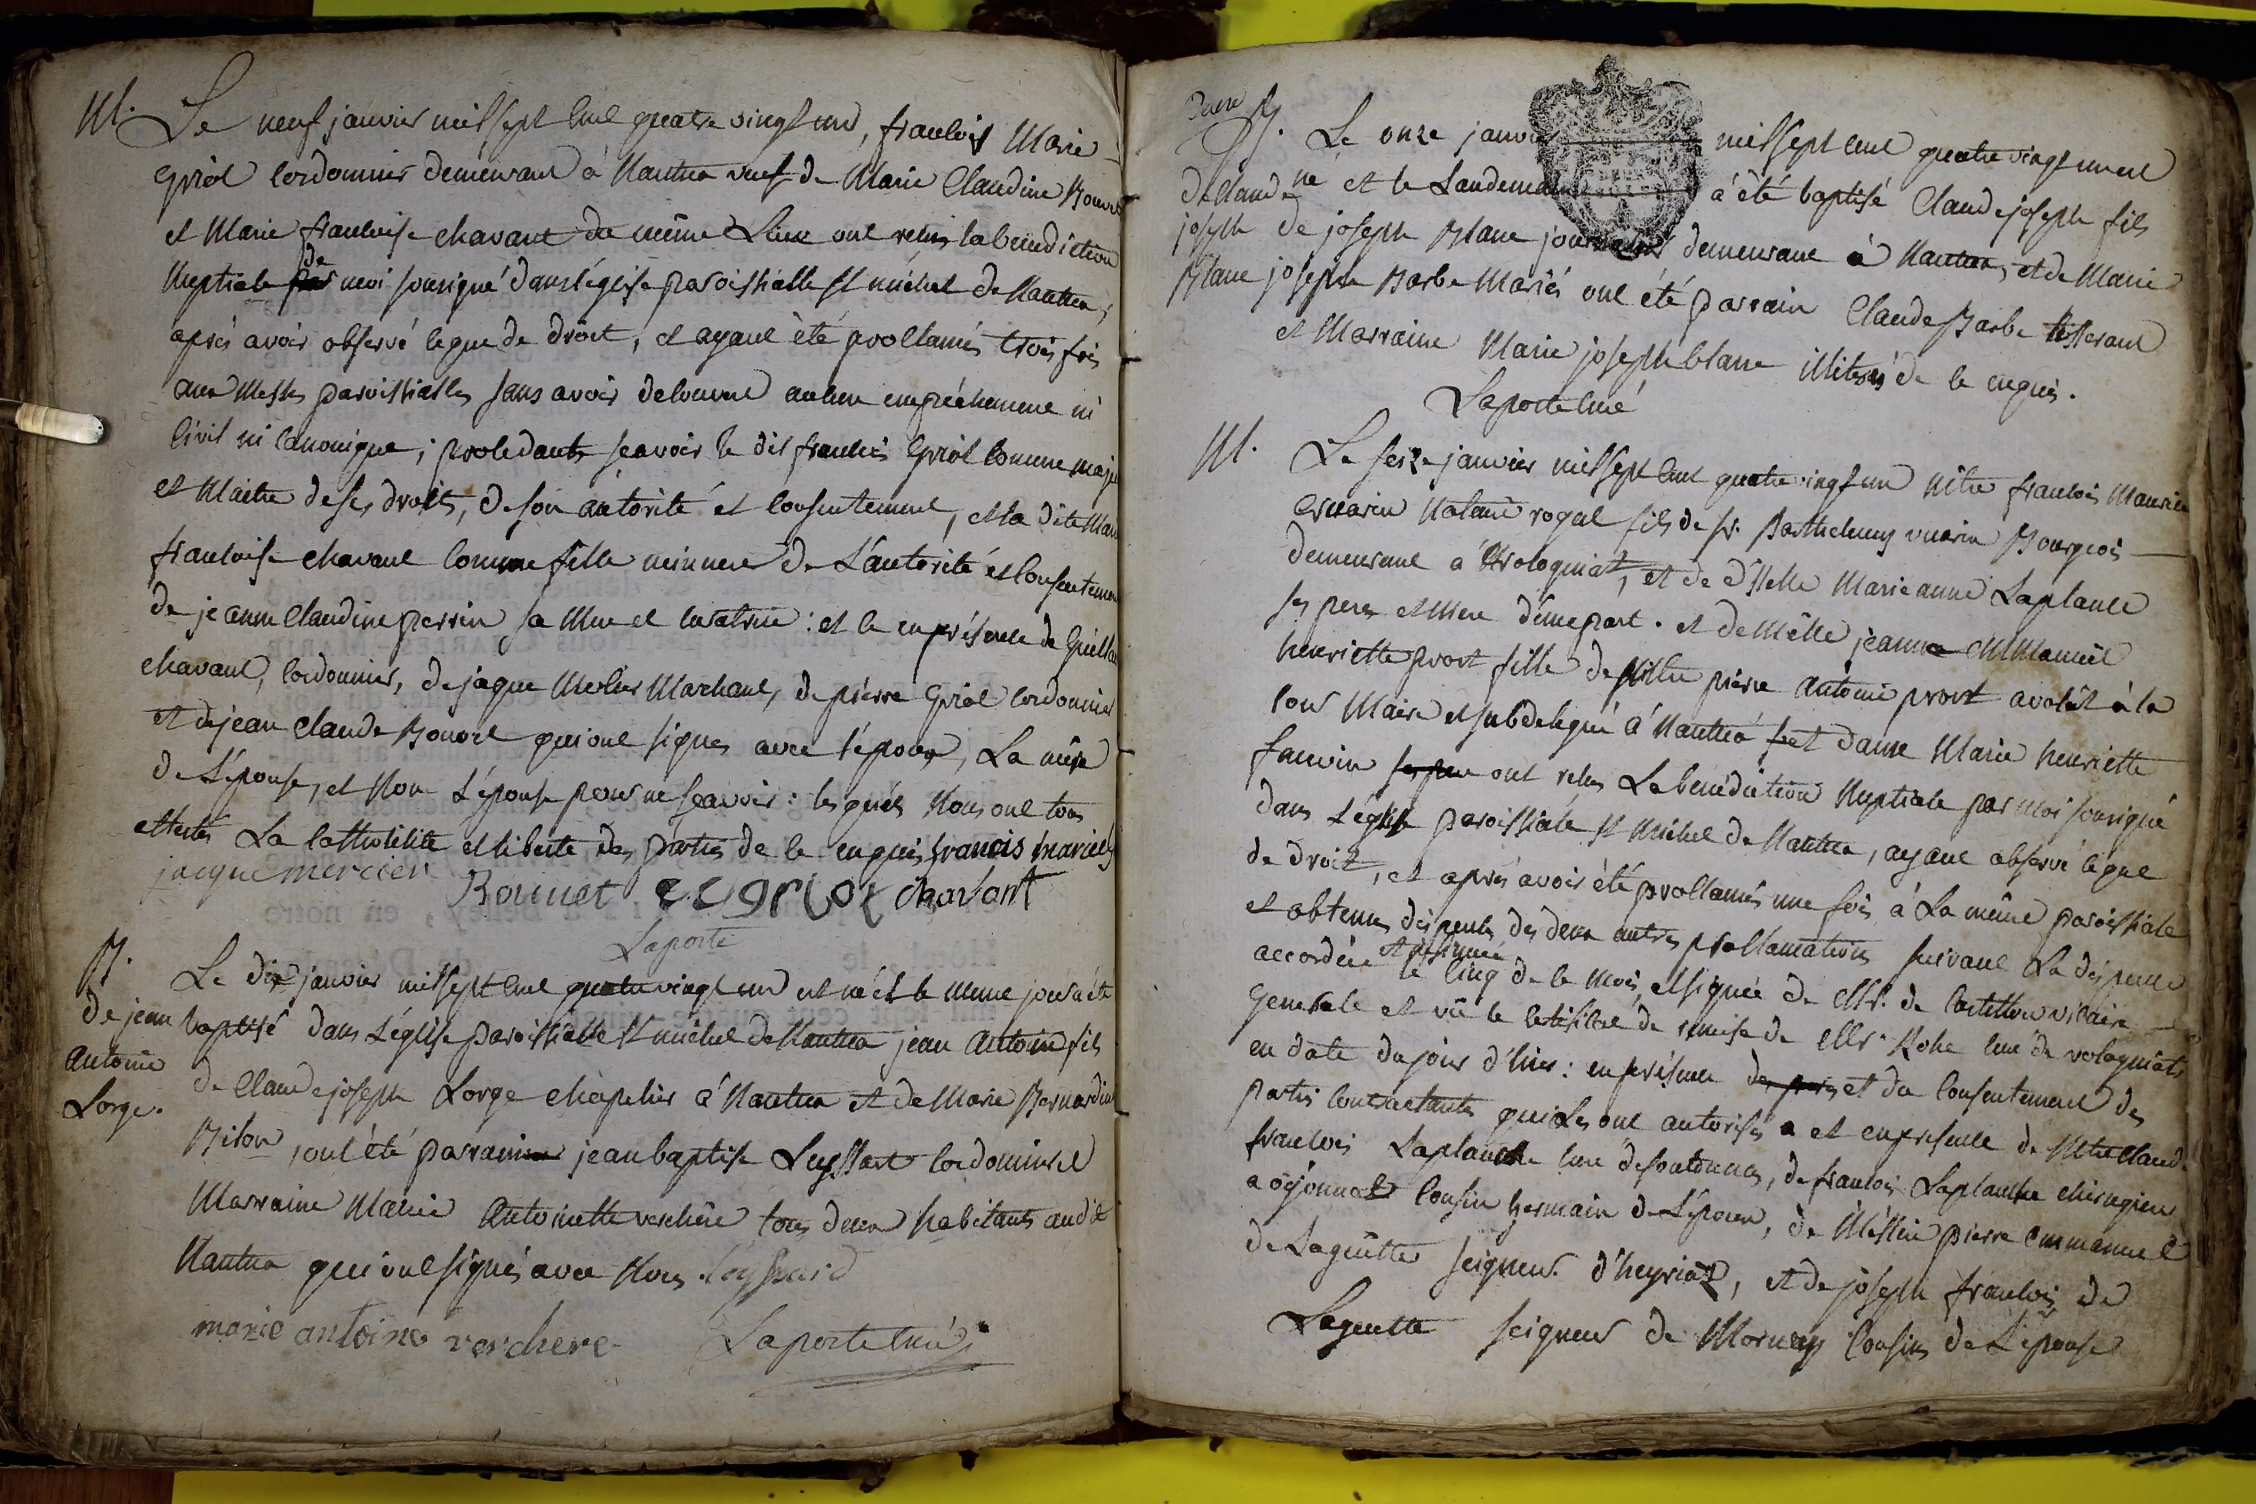 M. Le neuf janvier mil sept cent quatre vingt un, francois Marie
Griot cordonnier demeurant à Nantua veuf de Marie Claudine Bouvet
et Marie francoise chavant du même Lieu ont recus la benediction
Nuptiale de moi sousigné dans l'église paroissialle st michel de Nantua,
après avoir observé ce que de droit, et ayant été proclamés trois fois
aux Messes paroissialles sans avoir decouvert aucun empêchement ni
civil ni canonique ; procedants scavoir le dit francois Griot comme majeur
et Maitre de ses droits, de son autorité et consentement, et la dite Marie
francoise chavant comme fille mineure de L'autorité et consentement
de jeanne Claudine perrin sa Mere et curatrice : et ce en présence de Guillau
chavant, cordonnier, de jaque Mercier Marchant, de pierre Griot cordonnier
et de jean Claude Bouvet qui ont signés avec l'époux, La mère
de L'épouse, et Non L'épouse pour ne scavoir : les quels Nous ont tous
attestés La catholicité et liberté des parties de ce enquis francois marie
jacque mercier Bouvet griot chavant
Laporte
B. de jean Antoine Lorge.
Le dix janvier mil sept cent quatre vingt un est né et le meme jour a été
baptisé dans L'église paroissialle st michel de Nantua jean Antoine fils
de Claude joseph Lorge chapelier à Nantua et de Marie Bernardine
Bilon, ont été parrain jean baptiste Leyssard cordonnier et
Marraine Marie Antoinette verchère tous deux habitants audit
Nantua qui ont signés avec Nous Leyssard
marie antoine verchere Laporte curé
B. de Claude joseph Blanc
Le onze janvier mil sept cent quatre vingt un est
né et le Landemain à été baptisé Claude joseph fils
de joseph Blanc journalier demeurant à Nantua, et de Marie
josephe Barbe Mariés ont été parrain Claude Barbe tisserant
et Marraine Marie josephe blanc illiterés de ce enquis.
Laporte curé
M. Le seize janvier mil sept cent quatre vingt un Mitre francois Maurice
vuarin Notaire royal fils de sr. Barthelemy vuarin Bourgeois
demeurant à Volognat, et de dlle Marie anne Laplanche
ses pere et Mere d'une part. et de Mlle jeanne Emmanuel
henriette prost fille de Mitre pierre Antoine prost avocat à la
cour Maire et subdelegué à Nantua et dame Marie henriette
fauvin ont recus La benediction Nuptiale par moi sousigné
dans L'église paroissiale st Michel de Nantua, ayant observé ce que
de droit, et après avoir été proclamés une fois à La même paroissiale
et obtenus dispense des deux autres proclamations suivant La dispense
accordée et insinuée le cinq de ce mois, et signée de Mr. de vicaire
General et vû le certificat de remise de Mr. Roche curé de volognat
en date du jour d'hier : en présence et du consentement des
parties contractantes qui Les ont autorisés et en presence de Mitre Claude
francois Laplanche curé de, de francois Laplanche chirugien
a oyonnax cousin germain de L'époux, de Messire pierre Emmanuel
de Laguette seigneur d'heyriat, et de joseph francois de
Laguette seigneur de Mornay cousins de L'épouse